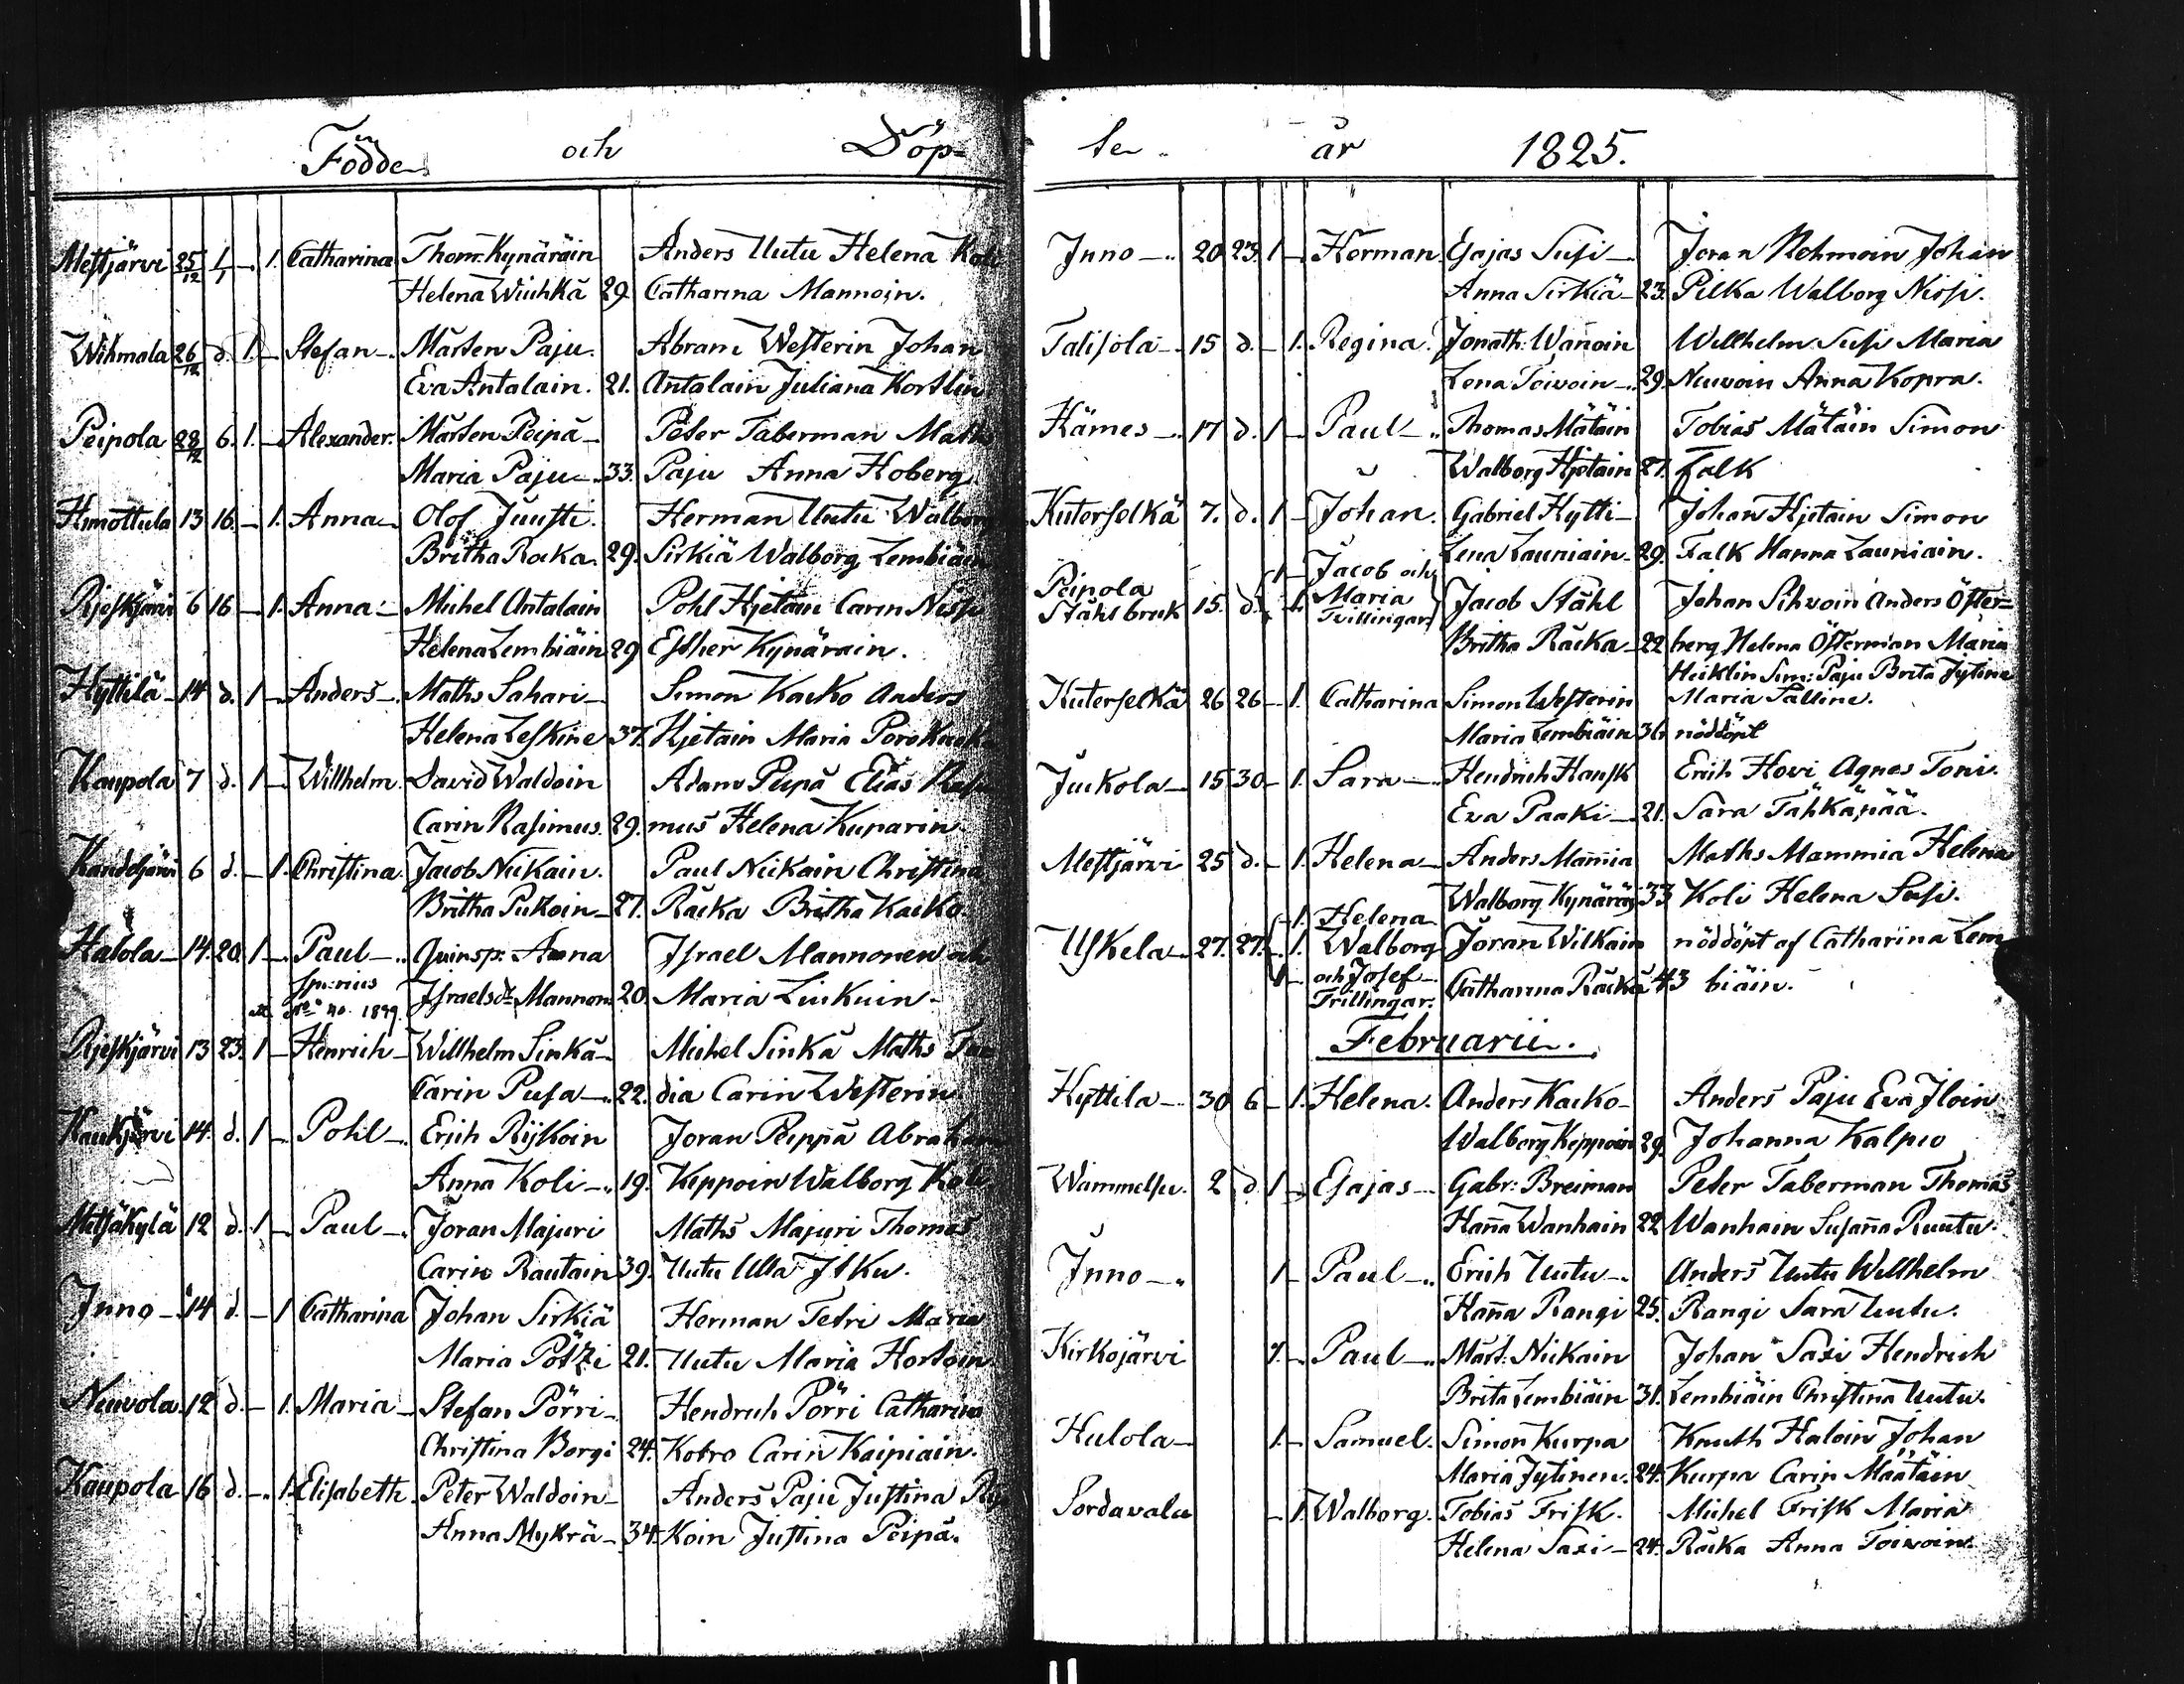 Födde och Döp-
Mestjärvi 25/12 1/1 - 1. Catharina Thom: Kynäräin Anders Uutu Helena Koli
Helena Wiuhkä 29. Catharina Mannoin.
Wihmala 26/12 d. 1. - Stefan - Mårten Paju. Abram Westerin Johan
Eva Antalain. 21. Antalain Juliana Kortlin
Peipola 28/12 6. 1. - Alexander. Mårten Peipä - Peter Taberman Maths
Maria Paju - 33. Paju Anna Hoberg
Himottula 13 16. - 1. Anna - Olof Juusti. Herman Uutu Walborg
Britha Räcka. 29. Sirkiä Walborg Lembiäin
Rjeskjärvi 6 16 - 1. Anna - Michel Antalain Pohl Hjetain Carin Nisp
Helena Lembiäin 29 Esther Kynäräin.
Hyttilä - 14 d. 1 - Anders - Maths Sahari - Simon Kaeko Anders
Helena Leskine 37. Hjetain Maria Porokaeko
Kaupola 7 d. 1 - Willhelm. David Waldoin Adam Peipä Elias Rasi
Carin Rasimus. 29. mus Helena Kuparin.
Kandeljärvi 6 d. - 1. Christina. Jacob Niikain. Paul Niikain Christina
Britha Pukoin - 27. Räcka Britha Kaeko.
Halola - 14. 20. 1 - Paul - Quinsp: Anna Israel Mannonen och
spurius Israelsdr Mannon. 20. Maria Liukuin -
1899.
Rjeskjärvi 13 23. 1 - Henrich - Willhelm Sinkä - Michel Sinkä Maths Tae
Carin Pusa - 22. dia Carin Westerin
Kaukjärvi 14. d. 1 - Pohl - Erich Rijkoin Joran Peippä Abraham
Anna Koli - 19. Keppoin Walborg Koli
Metsäkylä 12 d. 1 - Paul - Joran Majuri Maths Majuri Thomas
Carin Rautain 39. Uutu Ulla Itku.
Inno - 14 d. - 1 Catharina Johan Sirkiä Herman Tetri Maria
Maria Pötzi 21. Uutu Maria Hortoin
Neuvola 12 d. - 1. Maria - Stefan Pörri - Hendrich Pörri Catharina
Christina Borgi 24. Kotro Carin Kaipiain.
Kaupola 16 d. - 1. Elisabeth. Peter Waldoin - Anders Paju Justina Rij
Anna Mykrä - 34. Koin Justina Peipä.
te - år 1825.
Inno - 20 23. 1 - Herman. Esajas Susi - Joran Nehmoin Johan
Anna Sirkiä - 23. Pilka Walborg Nispi.
Talisola - 15 d. - 1. Regina. Jonath: Wanoin Willhelm Susi Maria
Lena Toivoin - 29. Neuvoin Anna Kopra.
Hämes - 17 d. 1 - Paul - Thomas Mätäin Tobias Mätäin Simon
Walborg Hjetain 27. Falk
Kuterselkä 7. d. 1 - Johan. Gabriel Hytti - Johan Hjetain Simon
Lena Launiain - 29. Falk Hanna Launiain.
Peipola 1 - Jacob och
Ståhlbruk 15. d. - 1. Maria Jacob Ståhl Johan Sihvoin Anders Öster=
Tvillingar Britha Räcka - 22 berg Helena Österman Maria
Heiklin Sim: Paju Brita Jytine
Kuterselkä 26 26 - 1. Catharina Simon Westerin Maria Palline.
Maria Lembiäin 36. nöddöpt
Juckola - 15 30 - 1. Sara - Hendrich Hausk Erich Hovi Agnes Toni.
Eva Paaki - 21. Sara Tähkäpää.
Mestjärvi 25 d. - 1. Helena - Anders Mañia Maths Mammia Helena
Walborg Kynäräi 33 Koli Helena Susi.
- 1. Helena
Uskela - 27. 27. - 1. Walborg Joran Wilkain nöddöpt af Catharina Lem
1 - och Josef - Catharina Räckä 43 biäin.
Trillingar.
Februarii.
Hyttila - 30 6 - 1. Helena. Anders Kaeko - Anders Paju Eva Iloin
Walborg Keppoin 29. Johanna Kalpio
Wammelsu. 2 d. 1 - Esajas - Gabr: Breiman Peter Taberman Thomas
Hañna Wanhain 22 Wanhain Susaña Ruutu.
Inno - 1 - Paul - Erich Uutu - Anders Uutu Willhelm
Haña Rangi 25. Rangi Sara Uutu.
Kirkojärvi 1. - Paul - Mårt: Niikain Johan Saxi Hendrich
Brita Lembiäin 31. Lembiäin Christina Uutu.
Hulola - 1. - Samuel. Simon Kurpa Knuth Haloin Johan
Maria Jytinen. 24. Kurpa Carin Määtäin
Sordavala - 1. Walborg. Tobias Frisk. Michel Frisk Maria
Helena Saxi - 24. Räcka Anna Toivoin.